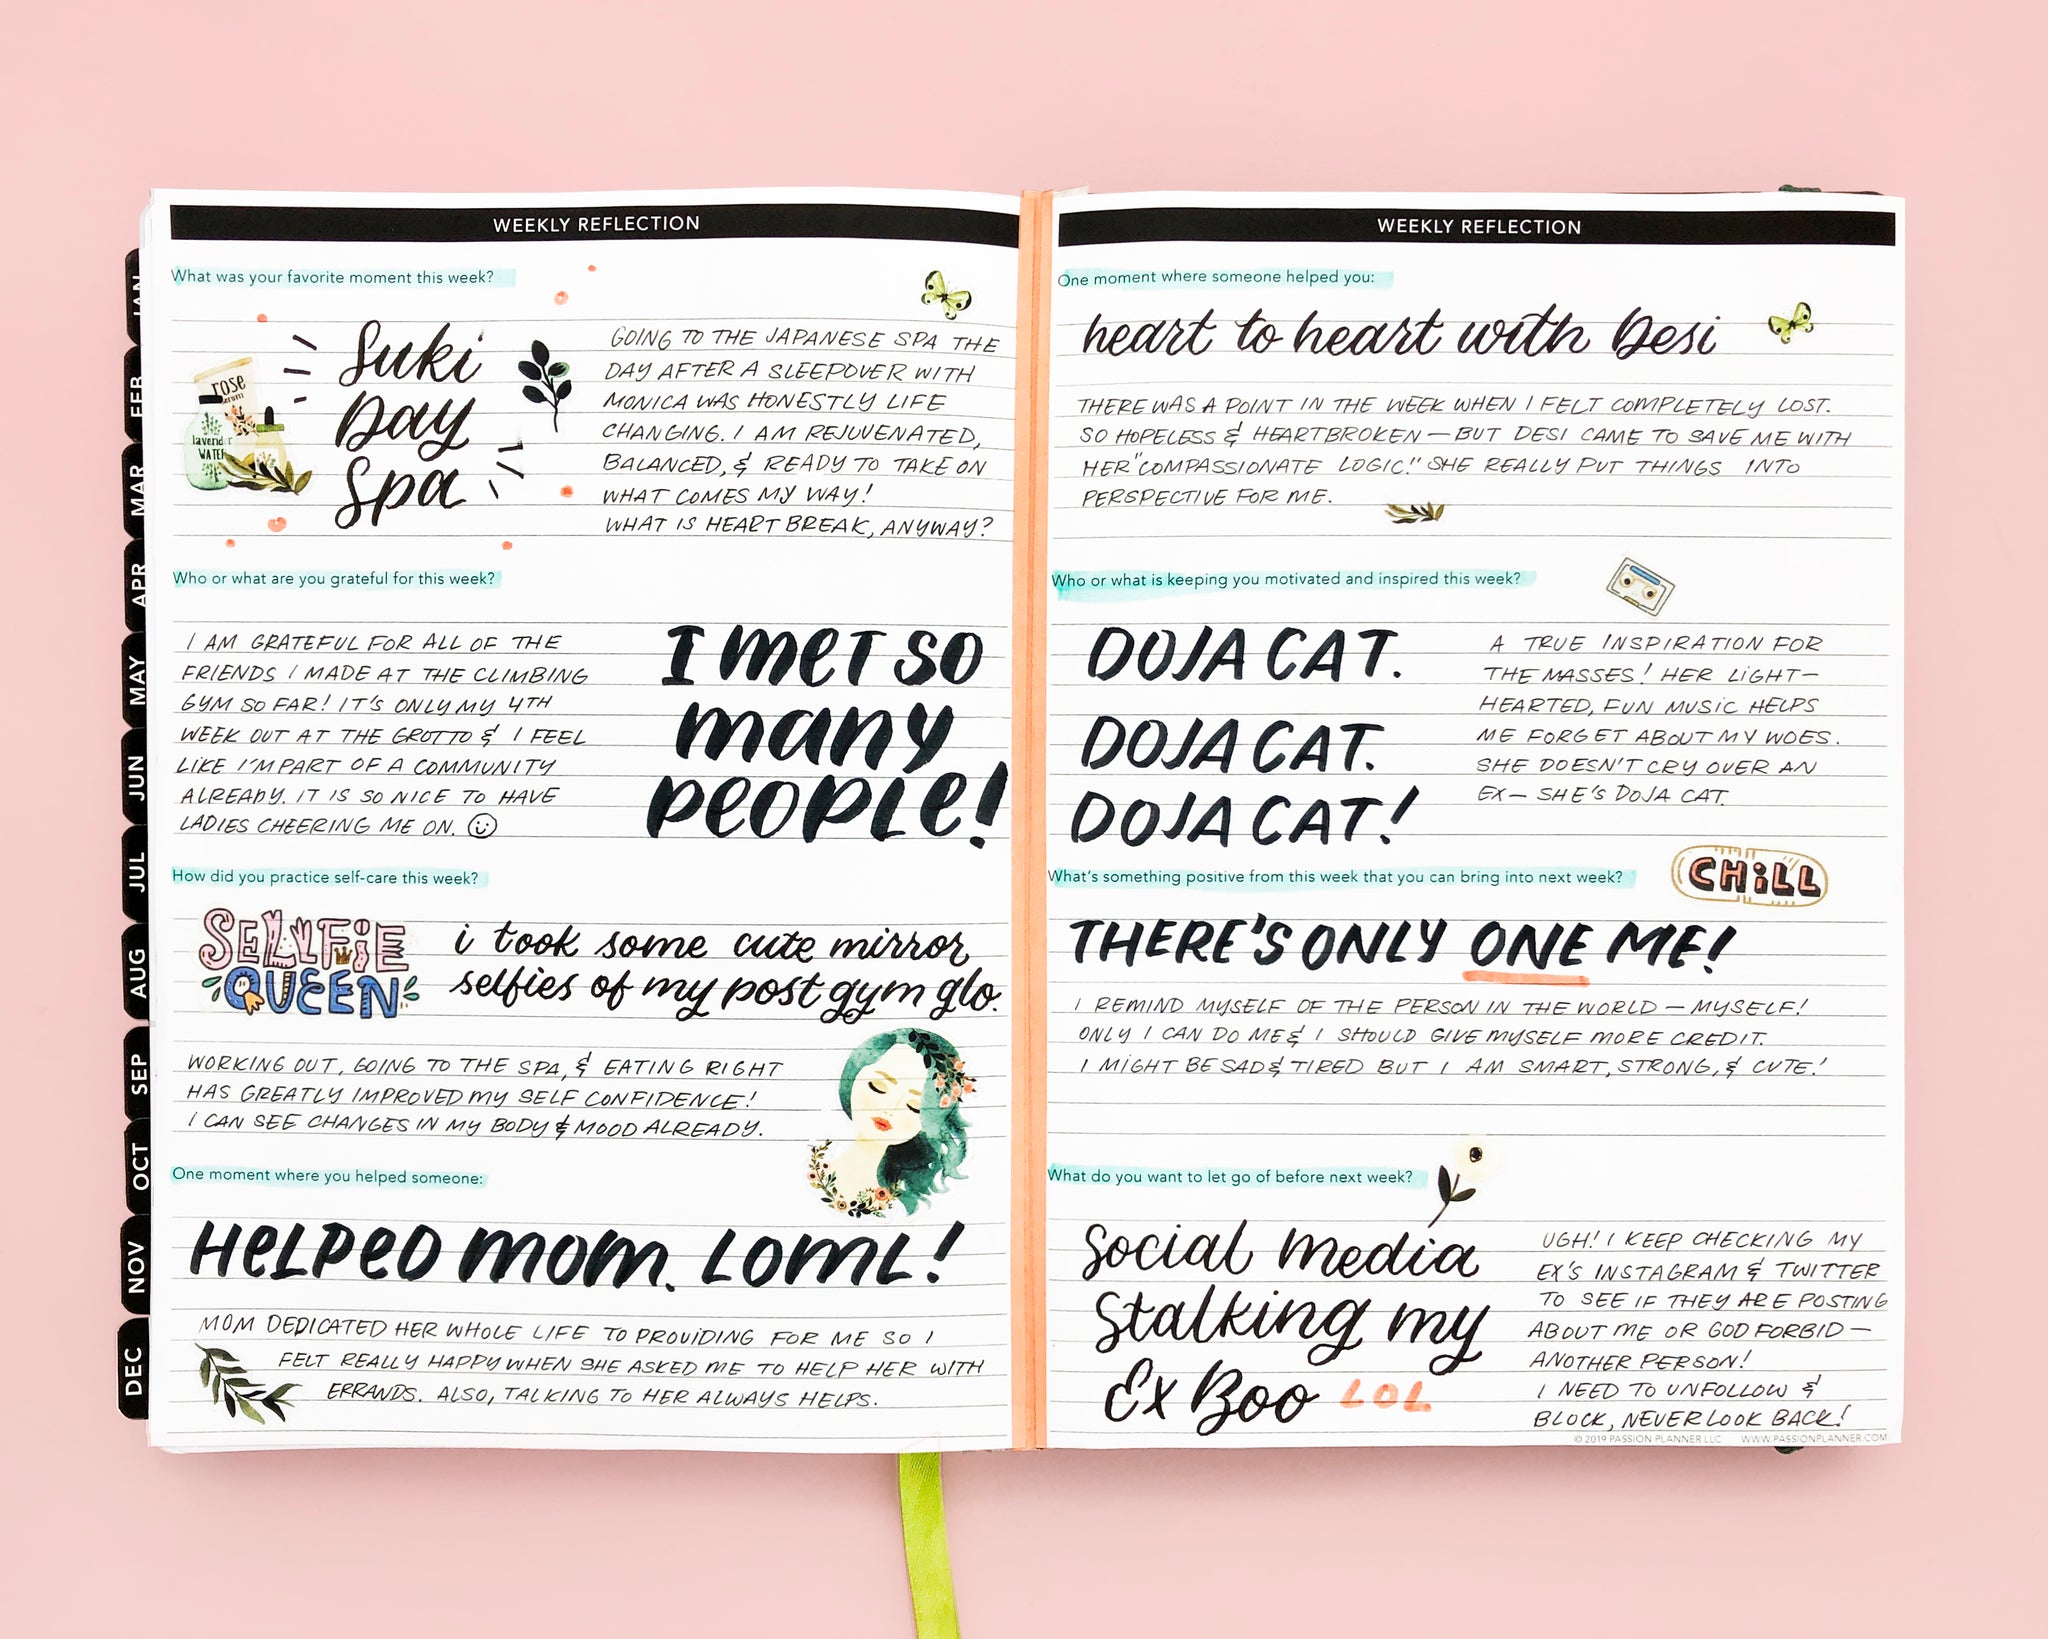 JAN
FEB
MAR
APR
MAY
JUN
JUL
AUG
SEP
OCT
NOV
DEC
WEEKLY REFLECTION
What was your favorite moment this week?
rose
serum
lavender
WATER
Suki
Day
Spa
GOING TO THE JAPANESE SPA THE
DAY AFTER A SLEEPOVER WITH
MONICA WAS HONESTLY LIFE
CHANGING. I AM REJUVENATED,
BALANCED, & READY TO TAKE ON
WHAT COMES MY WAY!
WHAT IS HEART BREAK, ANYWAY?
Who or what are you grateful for this week?
I AM GRATEFUL FOR ALL OF THE
FRIENDS I MADE AT THE CLIMBING
GYM SO FAR! IT'S ONLY MY 4TH
WEEK OUT AT THE GROTTO & I FEEL
LIKE I'M PART OF A COMMUNITY
ALREADY. IT IS SO NICE TO HAVE
LADIES CHEERING ME ON.
I MET SO
many
PEOPLE!
How did you practice self-care this week?
SELLFIE
QUEEN
i took some cute mirror
selfies of my post gym glo.
WORKING OUT, GOING TO THE SPA, & EATING RIGHT
HAS GREATLY IMPROVED MY SELF CONFIDENCE!
I CAN SEE CHANGES IN MY BODY & MOOD ALREADY.
One moment where you helped someone:
HELPED MOM. LOML!
MOM DEDICATED HER WHOLE LIFE TO PROVIDING FOR ME SO I
FELT REALLY HAPPY WHEN SHE ASKED ME TO HELP HER WITH
ERRANDS. ALSO, TALKING TO HER ALWAYS HELPS.
WEEKLY REFLECTION
One moment where someone helped you:
heart to heart with Desi
THERE WAS A POINT IN THE WEEK WHEN I FELT COMPLETELY LOST.
SO HOPELESS & HEARTBROKEN — BUT DESI CAME TO SAVE ME WITH
HER "COMPASSIONATE LOGIC." SHE REALLY PUT THINGS INTO
PERSPECTIVE FOR ME.
Who or what is keeping you motivated and inspired this week?
DOJA CAT.
DOJA CAT.
DOJA CAT!
A TRUE INSPIRATION FOR
THE MASSES! HER LIGHT—
HEARTED, FUN MUSIC HELPS
ME FORGET ABOUT MY WOES.
SHE DOESN'T CRY OVER AN
EX— SHE'S DOJA CAT.
What's something positive from this week that you can bring into next week?
CHiLL
THERE'S ONLY ONE ME!
I REMIND MYSELF OF THE PERSON IN THE WORLD — MYSELF!
ONLY I CAN DO ME & I SHOULD GIVE MYSELF MORE CREDIT.
I MIGHT BE SAD & TIRED BUT I AM SMART, STRONG, & CUTE!
What do you want to let go of before next week?
Social media
Stalking my
Ex Boo LOL
UGH! I KEEP CHECKING MY
EX'S INSTAGRAM & TWITTER
TO SEE IF THEY ARE POSTING
ABOUT ME OR GOD FORBID —
ANOTHER PERSON!
I NEED TO UNFOLLOW &
BLOCK, NEVER LOOK BACK!
© 2019 PASSION PLANNER LLC WWW.PASSIONPLANNER.COM